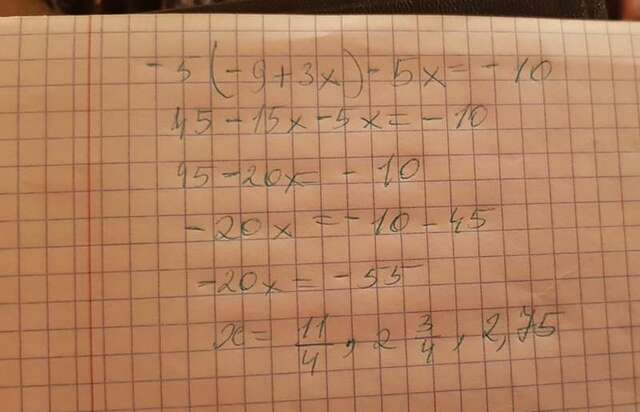 -5(-9+3x)-5x=-10
45-15x-5x=-10
45-20x=-10
-20x=-10-45
-20x=-55
x=11/4, 2 3/4, 2,75